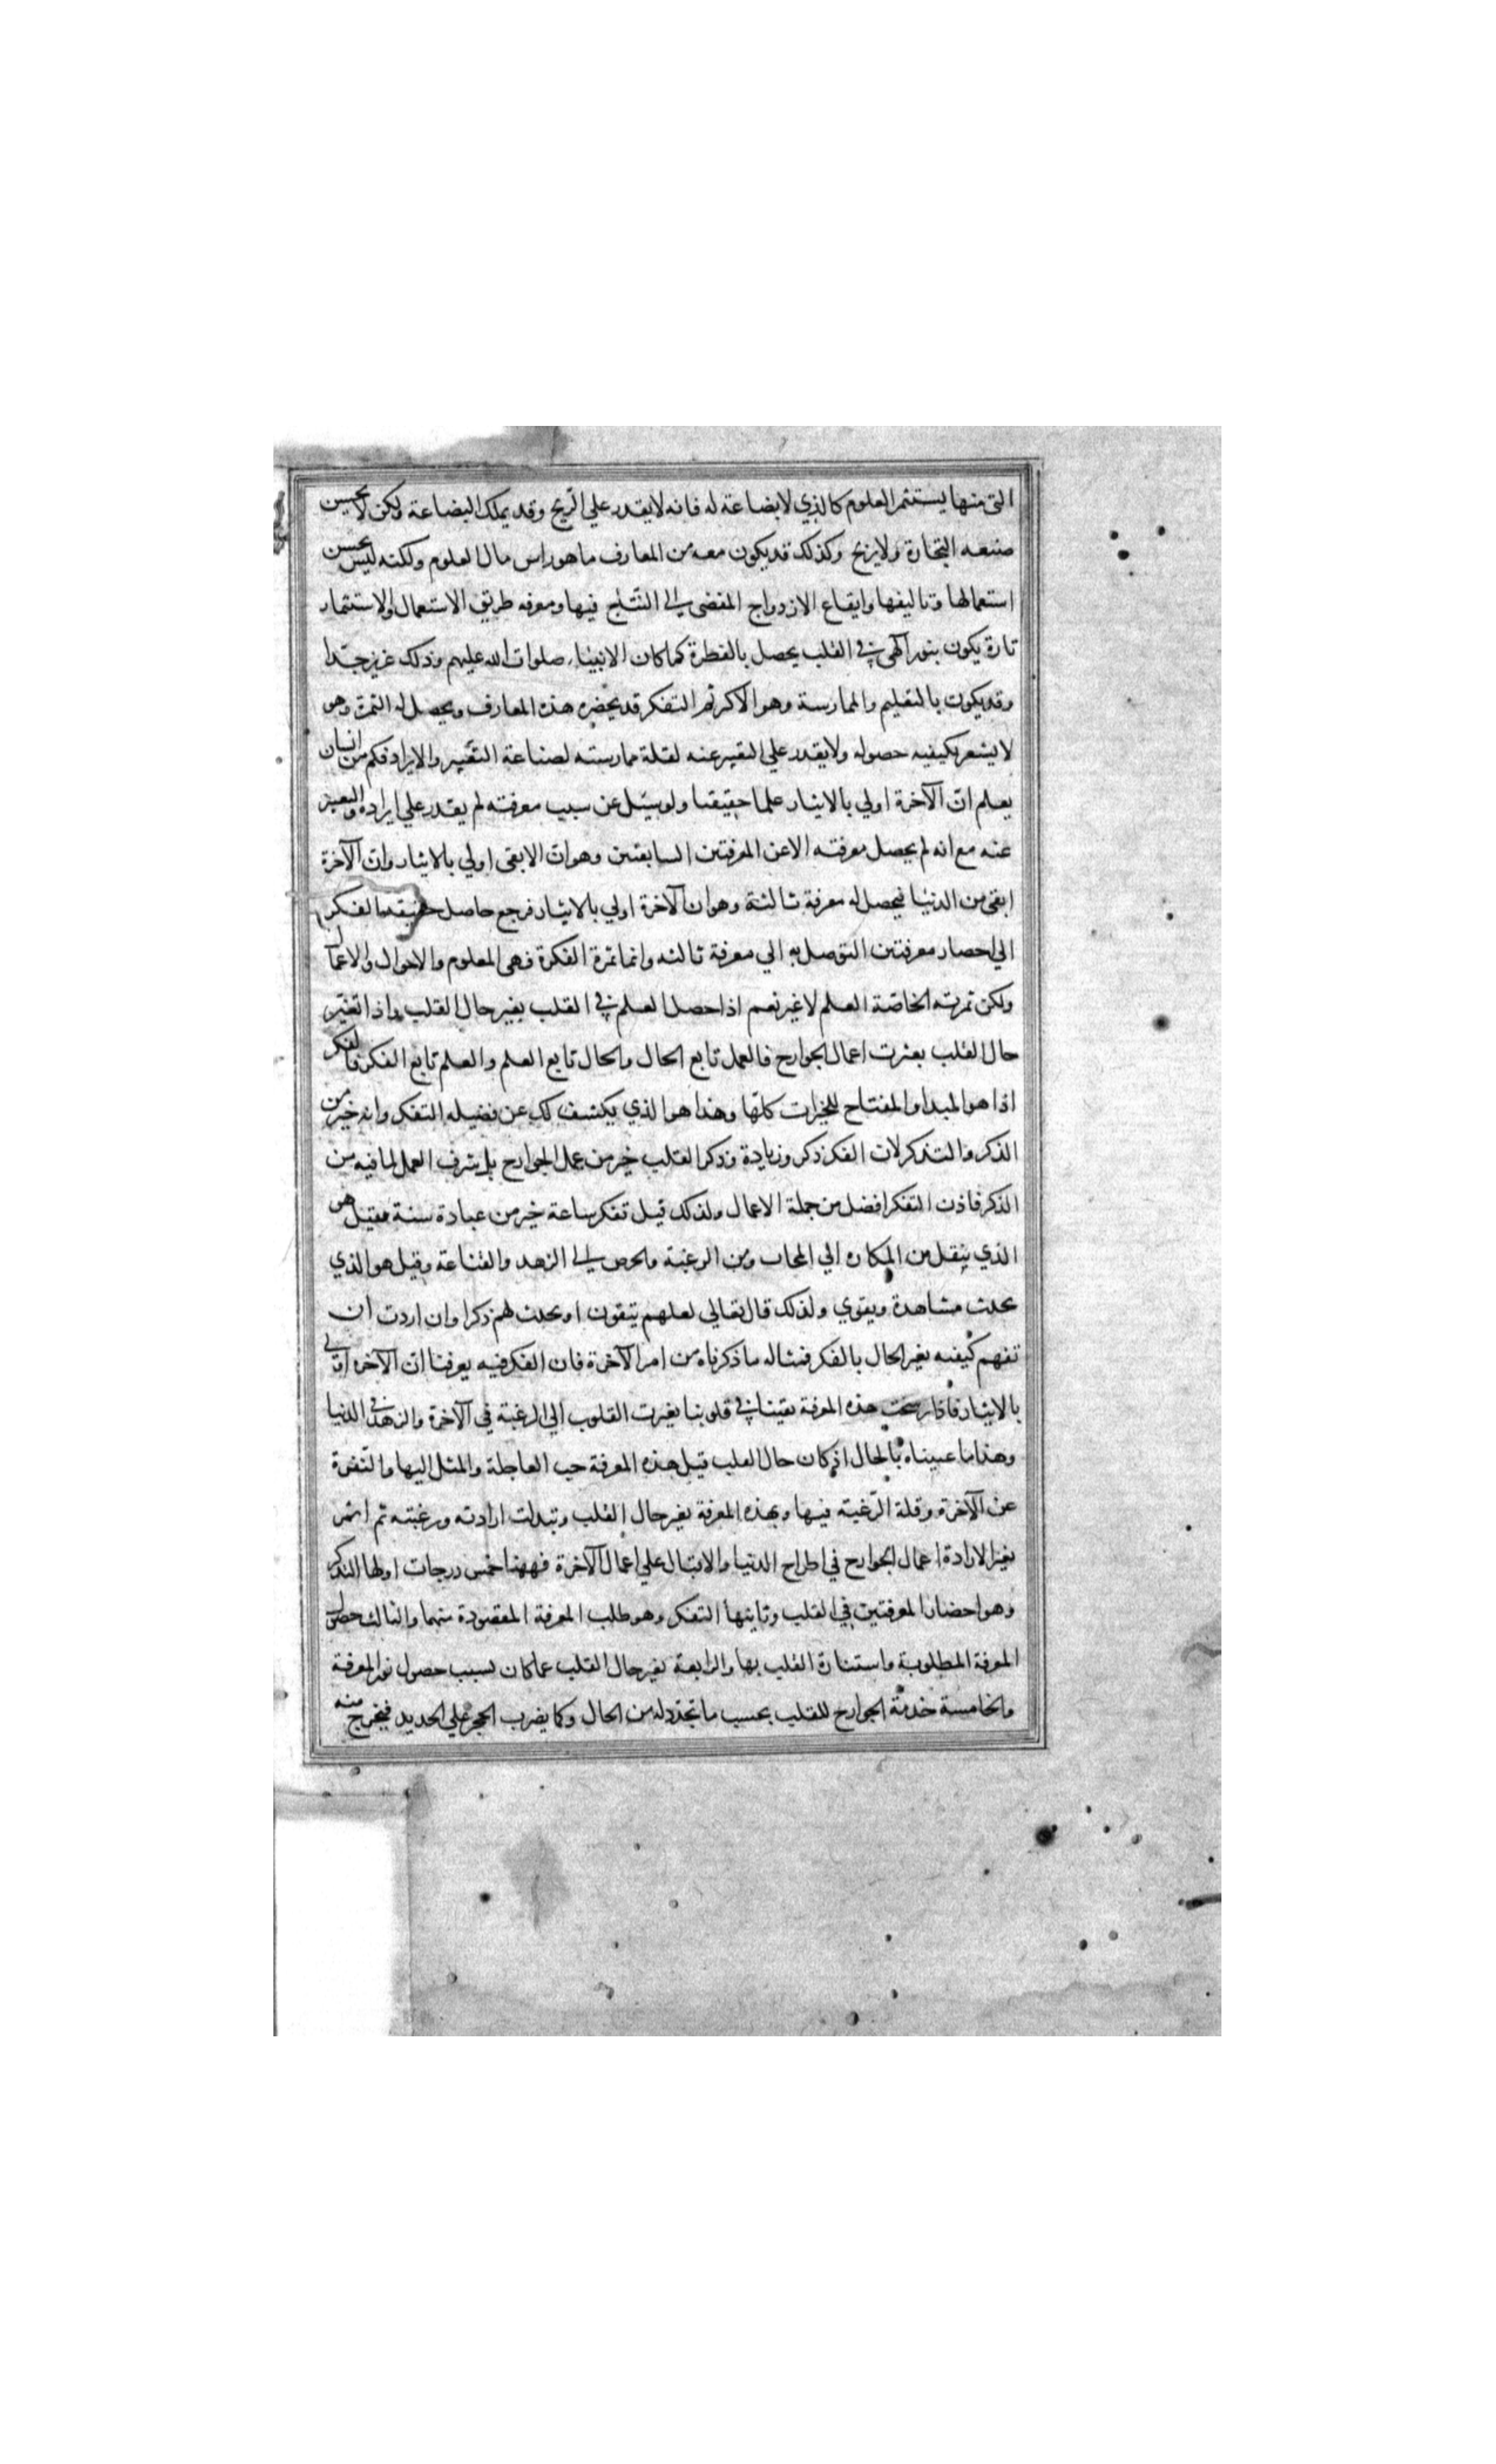 التى منها يستثمر العلوم كالذي لا بضاعة له فانه لا يقدر علي الربح وقد يملك البضاعة ولكن لا يحسن
صنعه التجارة ولا يربح وكذلك قد يكون معه من المعارف ما هو راس مال العلوم ولكنه ليس يحسن
استعمالها وتاليفها وايقاع الازدواج المفضى الى النتاج فيها ومعرفه طريق الاستعمال والاستثمار
تارة يكون بنور آلهى في القلب يحصل بالفطرة كما كان الانبيا صلوات الله عليهم وذلك عزيز جدا
وقد يكون بالتعليم والممارسة وهو الاكثر ثم التفكر قد يحضره هذه المعارف ويحصل له الثمرة وهو
لا يشعر بكيفيه حصوله ولا يقدر علي التعبير عنه لقلة ممارسته لصناعة التعبير والايراد فكم من انسان
يعلم ان الآخرة اولي بالايثار علما حقيقيا ولو سئل عن سبب معرفته لم يقدر علي ايراده والتعبير
عنه مع انه لم يحصل معرفته الا عن المعرفتين السابقتين وهو ان الابقى اولي بالايثار وان الآخرة
ابقى من الدنيا فيحصل له معرفة ثالثة وهو ان الآخرة اولي بالايثار فرجع حاصل حقيقه الفكر
الي احضار معرفتين التوصل به الي معرفة ثالثه وانما ثمرة الفكرة فهى العلوم والاحوال والاعمال
ولكن ثمرته الخاصة العلم لا غير نعم اذا حصل العلم في القلب يغير حال القلب واذا تغير
حال القلب بغيرت اعمال الجوارح فالعمل تابع الحال والحال تابع العلم والعلم تابع الفكر فالفكر
اذا هو المبدا والمفتاح للخيرات كلها وهذا هو الذي يكشف لك عن فضيله التفكر وانه خير من
الذكر والتذكر لان الفكر ذكر وزيادة وذكر القلب خير من عمل الجوارح بل شرف العمل لما فيه من
الذكر فاذن التفكر افضل من جملة الاعمال ولذلك قيل تفكر ساعة خير من عبادة سنة فقيل هو
الذي ينقل من المكاره الي المحاب ومن الرغبة والحرص الى الزهد والقناعة وقيل هو الذي
يحدث مشاهدة ويقوي ولذلك قال تعالي لعلهم يتقون او يحدث لهم ذكرا وان اردت ان
تفهم كيفيه يغير الحال بالفكر فمثاله ما ذكرناه من امر الآخرة فان الفكر فيه يعرفنا ان الآخره اولي
بالايثار فاذا رسخت هذه المعرفة يقينا في قلوبنا يغيرت القلوب الي الرغبة في الآخرة والزهد في الدنيا
وهذا ما عنيناه بالحال اذ كان حال القلب قبل هذه المعرفة حب العاجلة والميل اليها والنفرة
عن الآخرة وقلة الرغبة فيها وبهذه المعرفة يغير حال القلب وتبدلت ارادته ورغبته ثم اثمر
يغير الارادة اعمال الجوارح في اطراح الدنيا والاقبال علي اعمال الآخرة فههنا خمس درجات اولها التذكر
وهو احضار المعرفتين في القلب وثانيها التفكر وهو طلب المعرفة المقصودة منهما والثالث حصول
المعرفة المطلوبة واستنارة القلب بها والرابعة يغير حال القلب عما كان بسبب حصول نور المعرفة
والخامسة خدمة الجوارح للقلب بحسب ما تجدد له من الحال وكما يضرب الحجر علي الحديد فيخرج منه